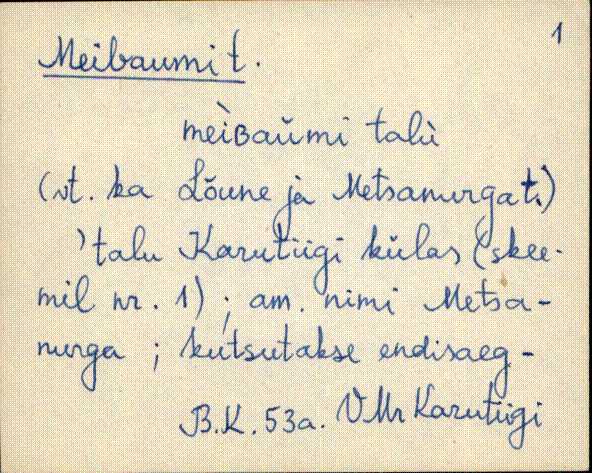 1
Meibaumi t.
meìʙaŭmi talù
(vt. ka Lõune ja Metsanurga t.)
'talu Karutiigi külas (skee-
mil nr. 1) ; am. nimi Metsa-
nurga ; kutsutakse endisaeg-
B.K. 53a. VMr Karutiigi